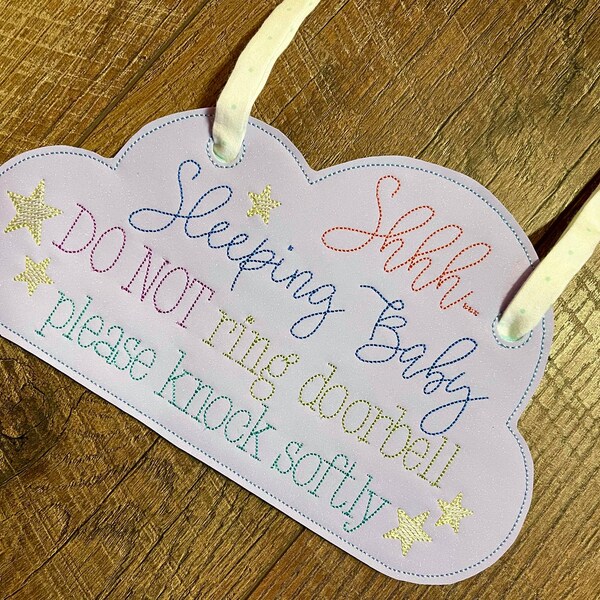 Shhh...
Sleeping Baby
DO NOT ring doorbell
please knock softly